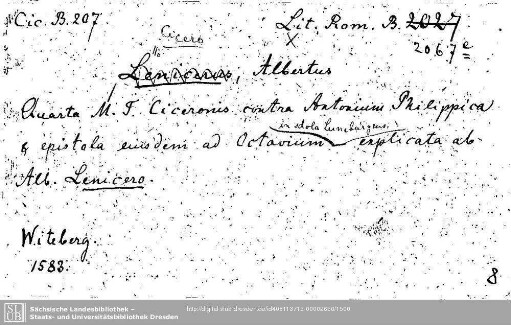 Cic. B. 207
Lit. Rom. B. 2027
2067 e
Cicero
Lenicerus, Albertus
Quarta M. T. Ciceronis contra Antonium Philippica
& epistola eiusdem ad Octavium in schola Luneburgens. explicata ab
Alb. Lenicero.
Witeberg.
1583.
8
SLUB
Sächsische Landesbibliothek –
Staats- und Universitätsbibliothek Dresden